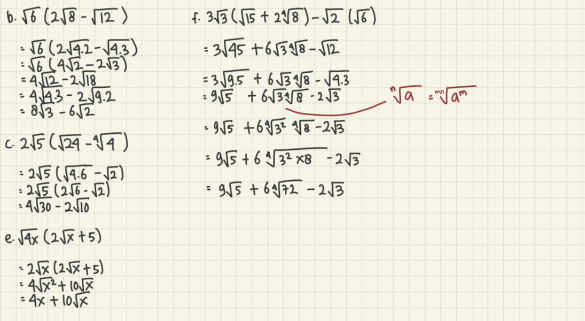 b. √6 (2√8 - √12 )
= √6 (2√4.2 - √4.3 )
= √6 (4√2 - 2√3 )
= 4√12 - 2√18
= 4√4.3 - 2√9.2
= 8√3 - 6√2
c. 2√5 (√24 - ⁴√4 )
= 2√5 (√4.6 - √2 )
= 2√5 (2√6 - √2 )
= 4√30 - 2√10
e. √4x (2√x + 5)
= 2√x (2√x + 5)
= 4√x² + 10√x
= 4x + 10√x
f. 3√3 (√15 + 2⁴√8 ) - √2 (√6 )
= 3√45 + 6√3 ⁴√8 - √12
= 3√9.5 + 6√3 ⁴√8 - √4.3
= 9√5 + 6√3 ⁴√8 - 2√3
ⁿ√a = ᵐⁿ√aᵐ
= 9√5 + 6⁴√3² ⁴√8 - 2√3
= 9√5 + 6 ⁴√3² ×8 - 2√3
= 9√5 + 6⁴√72 - 2√3